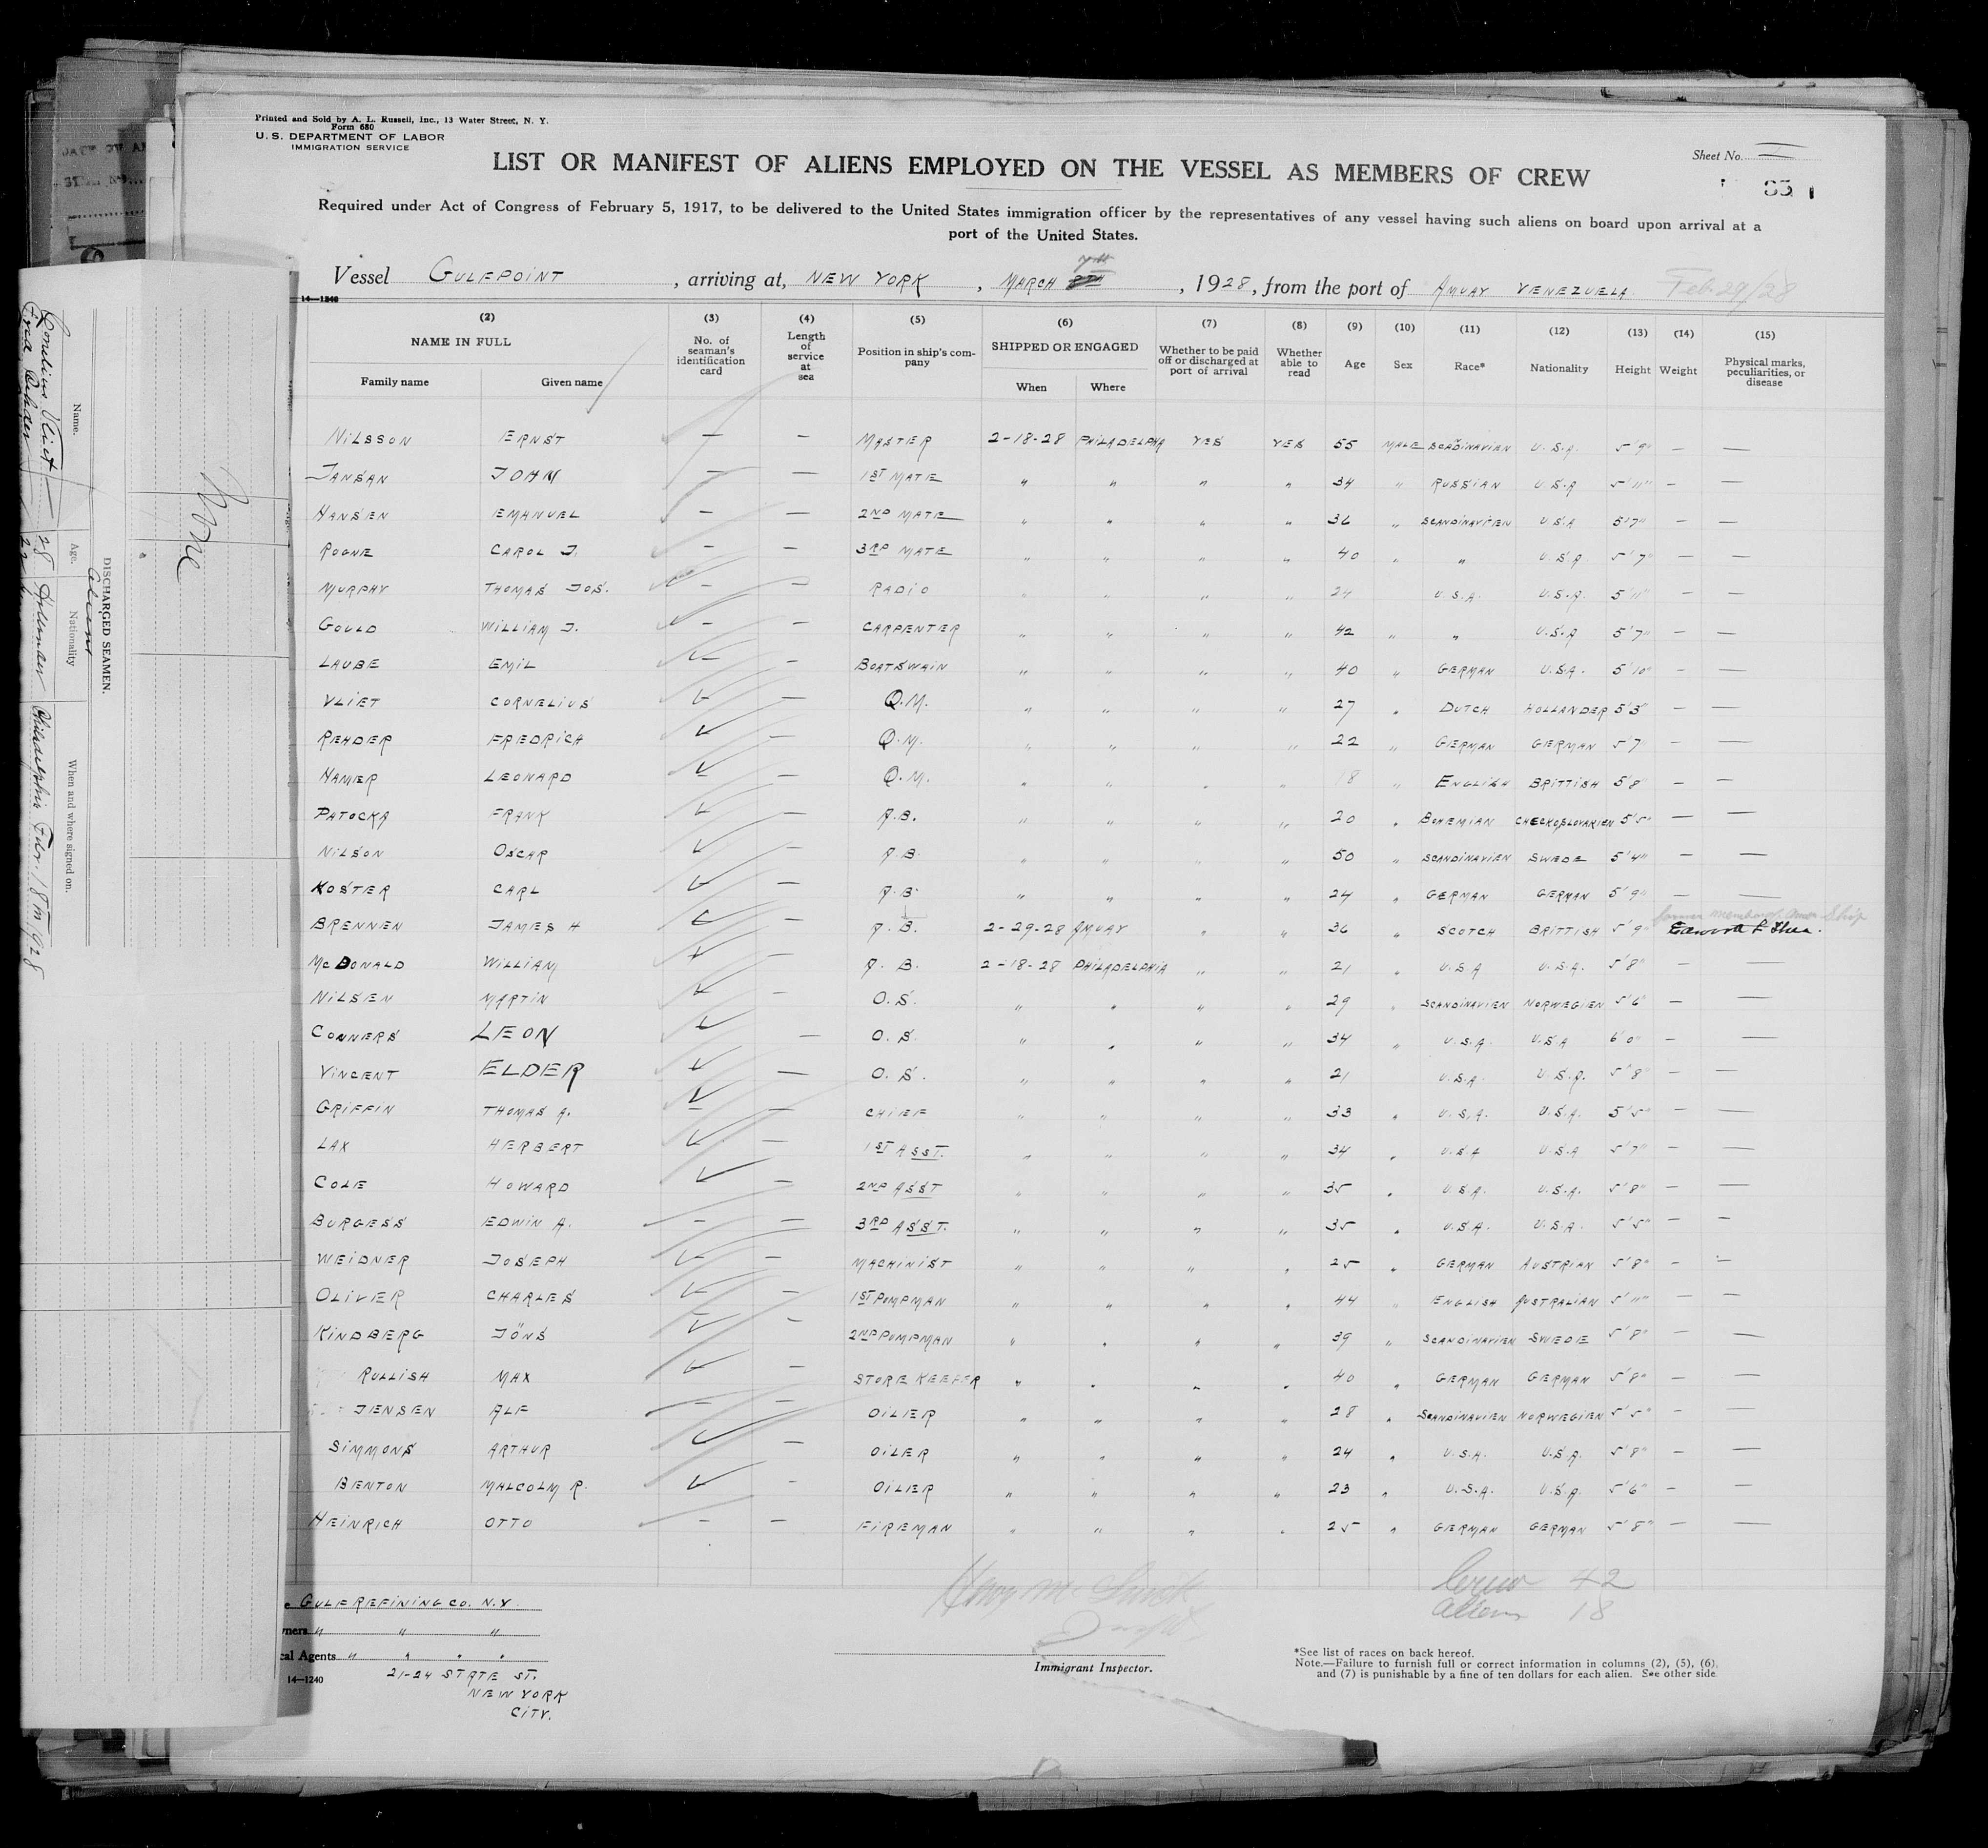 Printed and Sold by A. L. Russell, Inc., 13 Water Street, N. Y.
Form 680
U. S. DEPARTMENT OF LABOR
IMMIGRATION SERVICE
Sheet No. I
LIST OR MANIFEST OF ALIENS EMPLOYED ON THE VESSEL AS MEMBERS OF CREW
Required under Act of Congress of February 5, 1917, to be delivered to the United States immigration officer by the representatives of any vessel having such aliens on board upon arrival at a
port of the United States.
Vessel GULFPOINT, arriving at, NEW YORK, MARCH 7th 8TH, 1928, from the port of AMUAY VENEZUELA Feb. 29/28
14—1240
(2) (3) (4) (5) (6) (7) (8) (9) (10) (11) (12) (13) (14) (15)
NAME IN FULL No. of seaman's identification card Length of service at sea Position in ship's company SHIPPED OR ENGAGED Whether to be paid off or discharged at port of arrival Whether able to read Age Sex Race* Nationality Height Weight Physical marks, peculiarities, or disease
Family name Given name When Where
NILSSON ERNST — — MASTER 2-18-28 PHILADELPHA YES YES 55 MALE SCADINAVIEN U.S.A. 5'9" — —
JANSAN JOHN — — 1ST MATE " " " " 34 " RUSSIAN U.S.A 5'11" — —
HANSEN EMANUEL — — 2ND MATE " " " " 36 " SCANDINAVIEN U.S.A 5'7" — —
ROGNE CAROL J. — — 3RD MATE " " " " 40 " " U.S.A 5'7" — —
MURPHY THOMAS JOS. — — RADIO " " " " 24 U.S.A. U.S.A. 5'11" — —
GOULD WILLIAM J. — — CARPENTER " " " " 42 " " U.S.A 5'7" — —
LAUBE EMIL — — BOATSWAIN " " " " 40 " GERMAN U.S.A. 5'10" — —
VLIET CORNELIUS — Q.M. " " " " 27 " DUTCH HOLLANDER 5'3" — —
REHDER FREDRICH — Q.M. " " " " 22 " GERMAN GERMAN 5'7" — —
HAMER LEONARD — Q.M. " " " " 18 " ENGLISH BRITTISH 5'8" — —
PATOCKA FRANK — A.B. " " " " 20 " BOHEMIAN CHECKOSLOVAKIEN 5'5" — —
NILSON OSCAR — A.B. " " " " 50 " SCANDINAVIEN SWEDE 5'4" — —
KOSTER CARL — A.B. " " " " 24 " GERMAN GERMAN 5'9" — —
BRENNEN JAMES H A.B. 2-29-28 AMUAY " " 36 " SCOTCH BRITTISH 5'9"
MCDONALD WILLIAM — A.B. 2-18-28 PHILADELPHIA " " 21 " U.S.A U.S.A. 5'8" — —
NILSEN MARTIN — O.S. " " " " 29 " SCANDINAVIEN NORWEGIEN 5'6" — —
CONNERS LEON — O.S. " " " " 34 " U.S.A. U.S.A 6'0" — —
VINCENT ELDER — O.S. " " " " 21 U.S.A. U.S.A. 5'8" — —
GRIFFIN THOMAS A. — — CHIEF " " " " 33 " U.S.A. U.S.A. 5'5" — —
LAX HERBERT — 1ST ASST. " " " " 34 " U.S.A U.S.A 5'7" — —
COLE HOWARD — 2ND ASST " " " " 35 " U.S.A. U.S.A. 5'8" — —
BURGESS EDWIN A. — — 3RD ASST. " " " " 35 " U.S.A. U.S.A. 5'5" — —
WEIDNER JOSEPH — MACHINIST " " " " 25 " GERMAN AUSTRIAN 5'8" — —
OLIVER CHARLES — 1ST PUMPMAN " " " " 44 " ENGLISH AUSTRALIAN 5'11" — —
KINDBERG JÖNS — 2ND PUMPMAN " " " " 39 " SCANDINAVIEN SWEDE 5'8" — —
RULLISH MAX — STORE KEEPER " " " " 40 " GERMAN GERMAN 5'8" — —
JENSEN ALF — — OILER " " " " 28 " SCANDINAVIEN NORWEGIEN 5'5" — —
SIMMONS ARTHUR — OILER " " " " 24 " U.S.A. U.S.A. 5'8" — —
BENTON MALCOLM R. — OILER " " " " 23 " U.S.A. U.S.A. 5'6" — —
HEINRICH OTTO — — FIREMAN " " " " 25 " GERMAN GERMAN 5'8" — —
Crew 42
Aliens 18
GULF REFINING CO. N.Y
" " "
cal Agents " " " "
21-24 STATE ST.
NEW YORK
CITY.
14—1240
Immigrant Inspector.
*See list of races on back hereof.
Note.—Failure to furnish full or correct information in columns (2), (5), (6),
and (7) is punishable by a fine of ten dollars for each alien. See other side
DISCHARGED SEAMEN.
aliens
Name. Age. Nationality When and where signed on.
Cornelius Vliet 28 Hollander Philadelphia Feb. 18th 1928
None